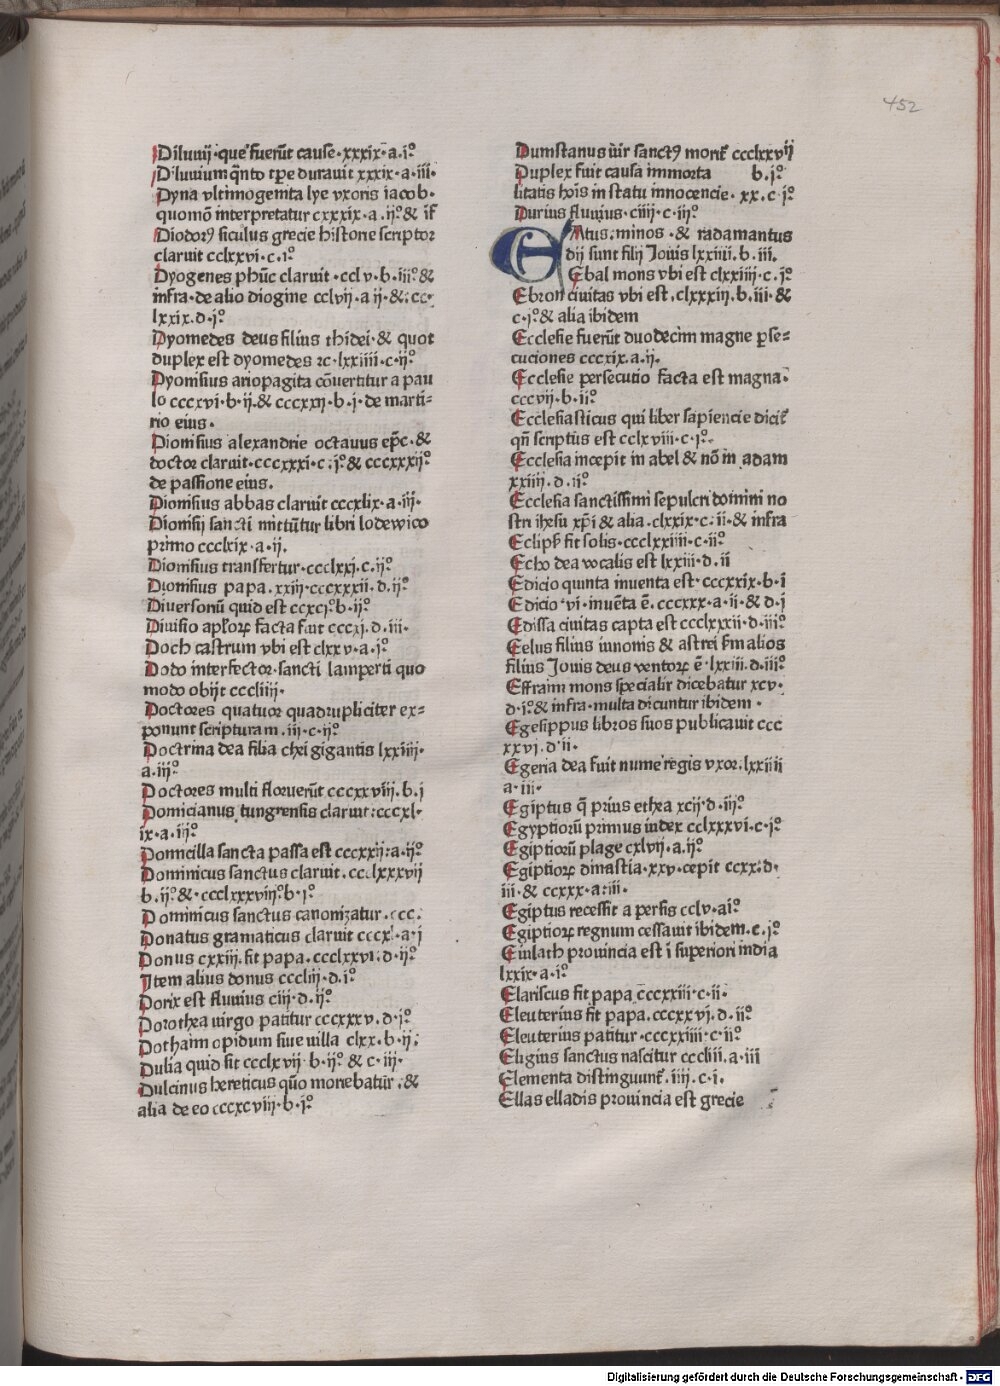 452
Diluuij · que fuerūt cause · xxxix · a · iº
Diluuium q̄nto tp̄e durauit xxxix · a · iii ·
Dyna vltimogenita lye vxoris iacob ·
quomō interpretatur cxxxix · a · ijº & iſ
Diodorꝰ siculus grecie historie scriptor
claruit cclxxvi · c · iº
Dyogenes phūc claruit · cclv · b · iiiº &
infra · de alio diogine cclvij · a ij · & · cc ·
lxxix · d · iº
Dyomedes deus filius thidei · & quot
duplex est dyomedes ꝛc · lxxiiii · c · ijº
Dyonisius ariopagita cōuertitur a pau
lo cccxvi · b · ij · & cccxxij · b · i · de marti=
rio eius ·
Dionisius alexandrie octauus ep̄c · &
doctor claruit · cccxxxi · c · iº & cccxxxijº
de passione eius ·
Dionisius abbas claruit cccxlix · a · iij ·
Dionisij sancti mittūtur libri lodewico
primo ccclxix · a · ij ·
Dionisius transfertur · ccclxxi · c · ijº
Dionisius papa · xxiij · cccxxxij · d · ijº
Diuersoriū quid est ccxcjº b · ijº
Diuisio apl'oꝝ facta fuit cccxj · d · iii ·
Doch castrum vbi est clxxv · a · iº
Dodo interfector · sancti lamperti quo
modo obijt cccliiii ·
Doctores quatuor quadrupliciter ex=
ponunt scripturam · iii · c · ijº
Doctrina dea filia chei gigantis lxxiiii ·
a · iijº
Doctores multi floruerūt cccxxviij · b · i
Domicianus tungrensis claruit · cccxl ·
ix · a · iijº
Domicilla sancta passa est cccxxij · a · ijº
Dominicus sanctus claruit · ccclxxxvij
b · ijº & · ccclxxxviijº b · iº
Dominicus sanctus canonizatur · ccc ·
Donatus gramaticus claruit cccxl · a · i
Donus cxxiii · fit papa · ccclxxvi · d · ijº
Item alius donus cccliij · d · iº
Dorix est fluuius ciij · d · ijº
Dorothea virgo patitur cccxxxv · d · iº
Dothaim opidum siue villa clxx · b · ij ·
Dulia quid sit ccclxvij · b · ijº & c · iij ·
Dulcinus hereticus quō mouebatur · &
alia de eo cccxcviii · b · iº
Dumstanus uir sanctꝰ morit̄ ccclxxvij
Duplex fuit causa immorta b · iº
litatis hois in statu innocencie · xx · c · iº
Durius fluuius · ciiij · c · iijº
EAtus · minos · & radamantus
dij sunt filij Iouis lxxiiii · b · iii ·
Ebal mons vbi est clxxiiij · c · iº
Ebron ciuitas vbi est · clxxxiij · b · iii · &
c · iº & alia ibidem
Ecclesie fuerūt duodecim magne ꝑse=
cuciones cccxix · a · ij ·
Ecclesie persecutio facta est magna ·
cccvij · b · iiº
Ecclesiasticus qui liber sapiencie dicit̄
qn̄ scriptus est cclxviii · c · iº
Ecclesia incepit in abel & nō in adam
xxiiii · d · iiº
Ecclesia sanctissimi sepulcri domini no
stri ihesu xp̄i & alia · clxxix · c · ii · & infra
Eclipẜ fit solis · ccclxxiiii · c · iiº
Echo dea vocalis est lxxiii · d · ii
Edicio quinta inuenta est · cccxxix · b · i
Edicio · vi · inuēta ē · cccxxx · a · ii · & d · i
Edissa ciuitas capta est ccclxxxii · d · iiiº
Eelus filius iunonis & astrei ẜm alios
filius Iouis deus ventoꝝ ē · lxxiii · d · iiiº
Effraim mons specialit̄ dicebatur xcv ·
d · iº & infra · multa dicuntur ibidem ·
Egesippus libros suos publicauit ccc
xxvi · d · ii ·
Egeria dea fuit nume regis vxor · lxxiiii
a · iii ·
Egiptus q̄ prius ethea xcij · d · iiiº
Egyptiorū primus iudex cclxxxvi · c · iº
Egiptiorū plage cxlvij · a · ijº
Egiptioꝝ dinastia · xxv · cepit ccxx · d ·
iii · & ccxxx · a · iii ·
Egiptus recessit a persis cclv · a iº
Egiptioꝝ regnum cessauit ibidem · c · iº
Eiulath prouincia est ī superiori india
lxxix · a · iº
Elariscus fit papa cccxxiii · c · ii ·
Eleuterius fit papa · cccxxvi · d · iiº
Eleuterius patitur · cccxxiiii · c · iiº
Eligius sanctus nascitur cccliii · a · iii
Elementa distinguunt̄ · iiii · c · i ·
Ellas elladis prouincia est grecie
Digitalisierung gefördert durch die Deutsche Forschungsgemeinschaft - DFG